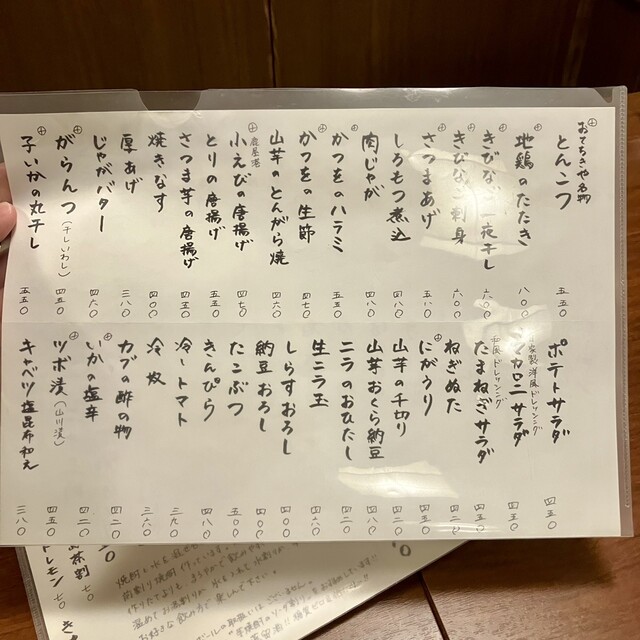 おてちきや名物
とんこつ 五五〇
地鶏のたたき 八〇〇
きびなご一夜干し 六〇〇
きびなご刺身 六〇〇
さつまあげ 五八〇
しろもつ煮込 四八〇
肉じゃが 四八〇
かつをのハラミ 五五〇
かつをの生節 四七〇
山芋のとんがら焼 四六〇
鹿屋港
小えびの唐揚げ 四七〇
とりの唐揚げ 五五〇
さつま芋の唐揚げ 四五〇
焼きなす 四〇〇
厚あげ 三八〇
じゃがバター 四六〇
がらんつ(干しいわし) 四五〇
子いかの丸干し 五五〇
ポテトサラダ 四五〇
洋風ドレッシング
マカロニサラダ 四五〇
和風ドレッシング
たまねぎサラダ 四五〇
ねぎぬた 四二〇
にがうり 四五〇
山芋の千切り 四二〇
山芋おくら納豆 四八〇
ニラのおひたし 四二〇
生ニラ玉 四六〇
しらすおろし 四〇〇
納豆おろし 四〇〇
たこぶつ 五〇〇
きんぴら 四八〇
冷しトマト 三九〇
冷奴 三六〇
カブの酢の物 四二〇
いかの塩辛 四二〇
ツボ漬(山川漬) 四五〇
キャベツ塩昆布和え 三八〇
茶割 七〇
レモン 七〇